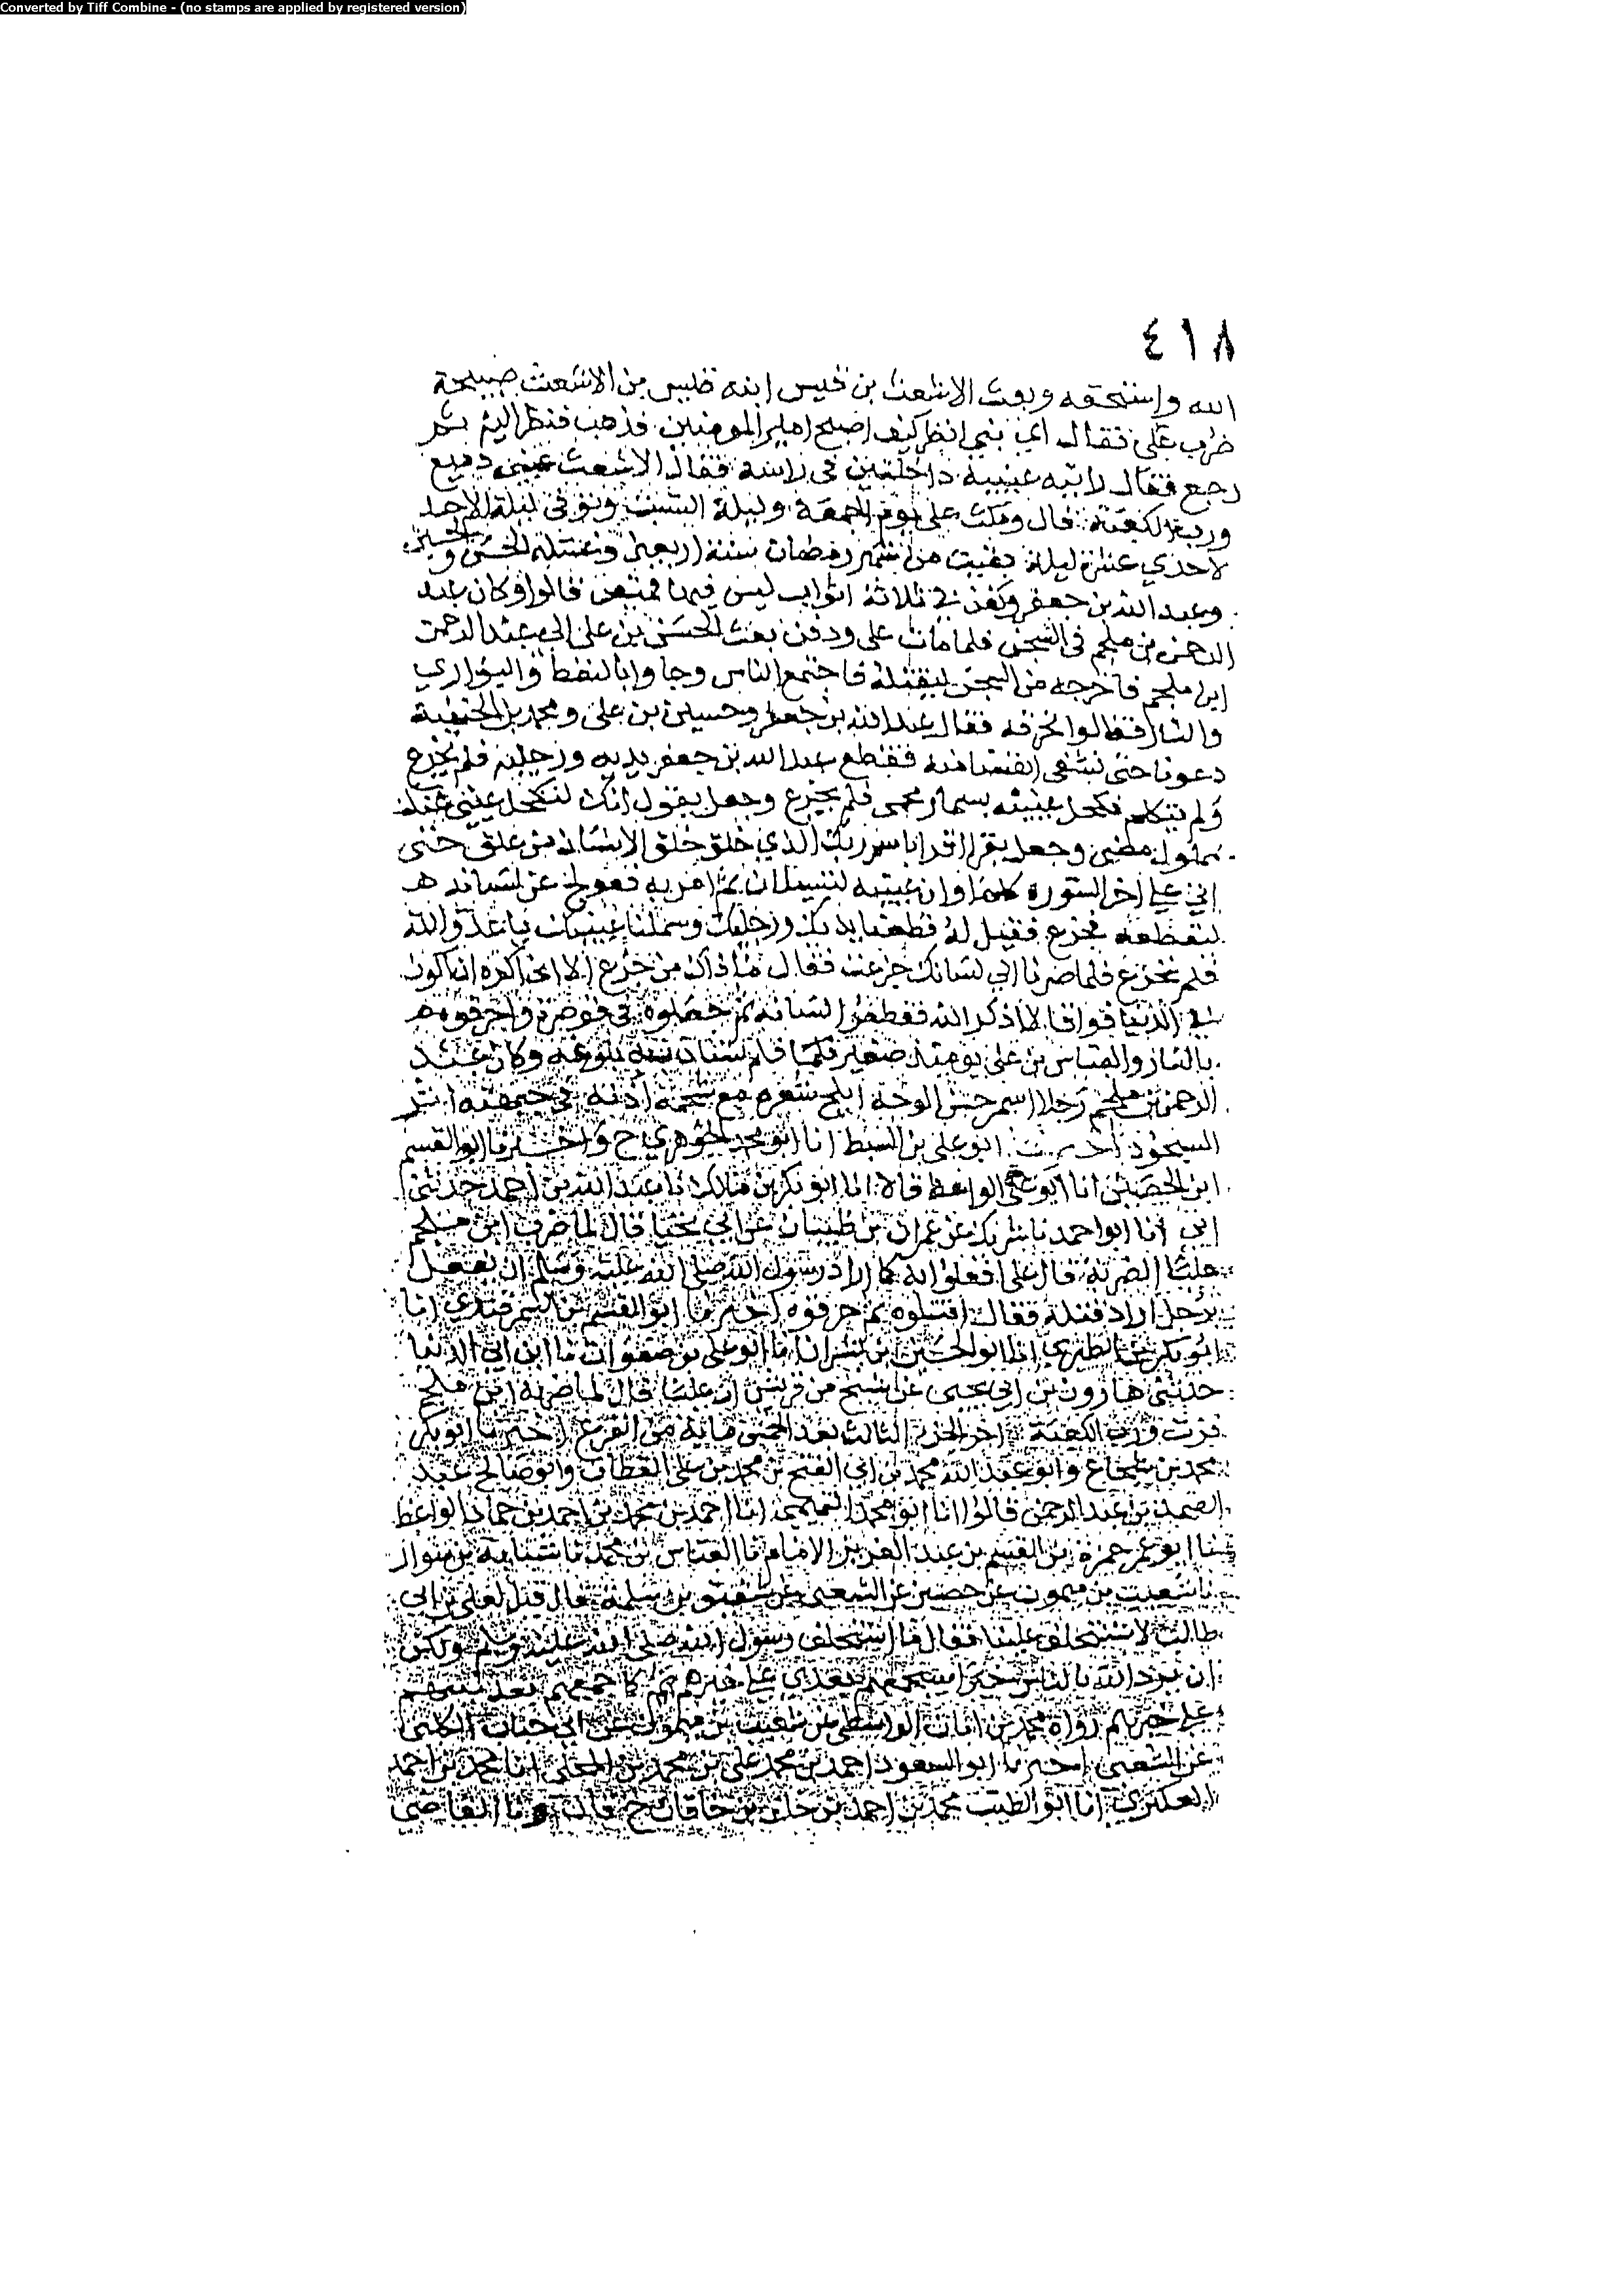 Converted by Tiff Combine - (no stamps are applied by registered version)
٤١٨
الله واستحقه وبعث الاشعث بن قيس ابنه قيس بن الاشعث صبيحة
ضرب علي فقال اي بني انظر كيف اصبح امير المومنين فذهب فنظر اليه ثم
رجع فقال رايته عينيه داخلتين في راسه فقال الاشعث عيني دميغ
ورب الكعبة قال ومكث علي يوم الجمعة وليلة السبت وتوفي ليلة الاحد
لاحدي عشرة ليلة بقيت من شهر رمضان سنة اربعين وغسله الحسن والحسين
وعبد الله بن جعفر وكفن في ثلاثة اثواب ليس فيها قميص قالوا وكان عبد
الرحمن بن ملجم في السجن فلما مات علي ودفن بعث الحسن بن علي الى عبد الرحمن
ابن ملجم فاخرجه من السجن ليقتله فاجتمع الناس وجاوا بالنفط والبواري
والنار فقالوا نحرقه فقال عبد الله بن جعفر وحسين بن علي ومحمد بن الحنفية
دعونا حتى نشفي انفسنا منه فقطع عبد الله بن جعفر يديه ورجليه فلم يجزع
ولم يتكلم فكحل عينيه بمسمار محمى فلم يجزع وجعل يقول انك لتكحل عيني عمك
بملمول مضى وجعل يقرا اقرا باسم ربك الذي خلق خلق الانسان من علق حتى
اتى على اخر السورة كلها وان عينيه لتسيلان ثم امر به فعولج عن لسانه
ليقطعه فجزع فقيل له قطعنا يديك ورجليك وسملنا عينيك يا عدو الله
فلم تجزع فلما صرنا الى لسانك جزعت فقال ما ذاك من جزع الا اني اكره ان اكون
في الدنيا فواقا لا اذكر الله فقطعوا لسانه ثم جعلوه في قوصرة واحرقوه
بالنار والعباس بن علي يومئذ صغير فلم يستان به بلوغه وكان عبد
الرحمن بن ملجم رجلا اسمر حسن الوجه ابلج شعره مع شحمة اذنه في جبهته اثر
السجود اخبرنا ابو علي بن السبط انا ابو محمد الجوهري ح واخبرنا ابو القسم
ابن الحصين انا ابو علي الواعظ قالا انا ابو بكر بن مالك نا عبد الله بن احمد حدثني
ابي نا ابو احمد نا شريك عن عمران بن ظبيان عن ابي يحيا قال لما ضرب ابن ملجم
عليا الضربة قال علي افعلوا به كما اراد رسول الله صلى الله عليه وسلم ان يفعل
برجل اراد قتله فقال اقتلوه ثم حرقوه اخبرنا ابو القسم بن السمرقندي انا
ابو بكر بن الطبري انا ابو الحسين بن بشران انا ابو علي بن صفوان نا ابن ابي الدنيا
حدثني هارون بن ابي يحيى عن شيخ من قريش ان عليا قال لما ضربه ابن ملجم
فزت ورب الكعبة اخر الجزء الثالث بعد الخمس ماية من الفرع اخبرنا ابو بكر
محمد بن شجاع وابو عبد الله محمد بن ابي الفتح بن محمد بن علي القطان وابو صالح عبد
الصمد بن عبد الرحمن قالوا انا ابو محمد التميمي انا احمد بن محمد بن احمد بن حماد الواعظ
نا ابو عمر حمزة بن القسم بن عبد العزيز الامام نا العباس بن محمد نا شبابة بن سوار
نا شعيب بن ميمون عن حصين عن الشعبي عن شقيق بن سلمة قال قيل لعلي بن ابي
طالب الا تستخلف علينا فقال ما استخلف رسول الله صلى الله عليه وسلم ولكن
ان يرد الله بالناس خيرا سيجمعهم بعدي على خيرهم كما جمعهم بعد نبيهم
على خيرهم رواه محمد بن ابان الواسطي عن شعيب بن ميمون عن ابي جناب الكلبي
عن الشعبي اخبرنا ابو السعود احمد بن محمد علي بن محمد بن المجلي انا محمد بن احمد
العكبري انا ابو الطيب محمد بن احمد بن خلف بن خاقان ح قال ونا القاضي